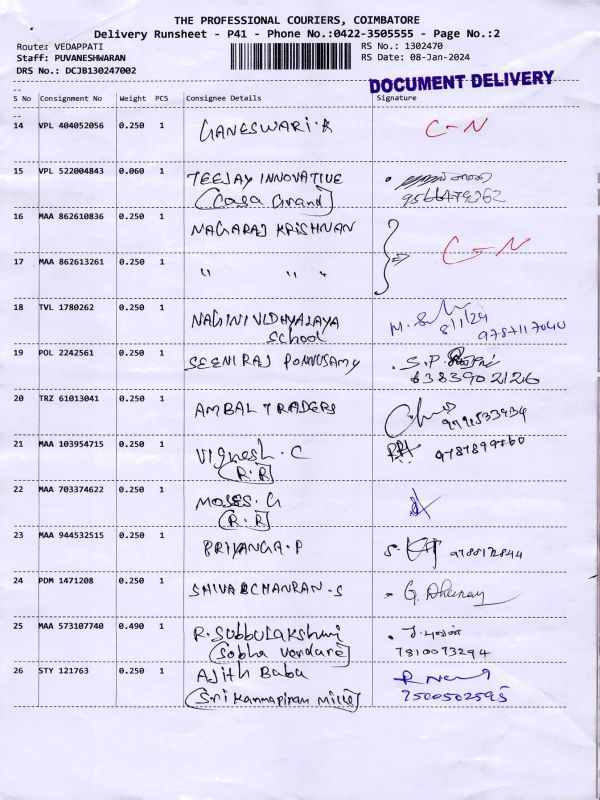 THE PROFESSIONAL COURIERS, COIMBATORE
Delivery Runsheet - P41 - Phone No.:0422-3505555 - Page No.:2
Route: VEDAPPATI RS No.: 1302470
Staff: PUVANESHWARAN RS Date: 08-Jan-2024
DRS No.: DCJB130247002
DOCUMENT DELIVERY
S No Consignment No Weight PCS Consignee Details Signature
14 VPL 404052056 0.250 1 GANESWARI.R C-N
15 VPL 522004843 0.060 1 TEEJAY INNOVATIVE
(Casa Grand)
16 MAA 862610836 0.250 1 NAGARAJ KRISHNAN
17 MAA 862613261 0.250 1 " " " C-N
18 TVL 1780262 0.250 1 NAGINI VIDHYALAYA
School 8/1/24
19 POL 2242561 0.250 1 SEENIRAJ PONNUSAMY S.P.
6383902126
20 TRZ 61013041 0.250 1 AMBAL TRADERS
21 MAA 103954715 0.250 1 Vignesh.C 9787899760
(R.R)
22 MAA 703374622 0.250 1 MOSES.G
(R.R)
23 MAA 944532515 0.250 1 PRIYANGA.P
24 PDM 1471208 0.250 1 G.
25 MAA 573107740 0.490 1 R.Subbulakshmi
(Sobha Verdure) 7810073294
26 STY 121763 0.250 1 Ajith Babu
(Sri Kannapiran Mills) 7500502595